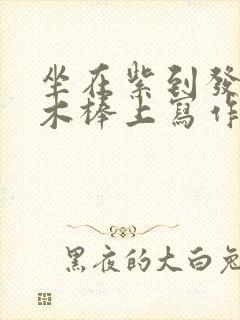 坐在紫到發
木棒上寫作
黑夜的大白兔